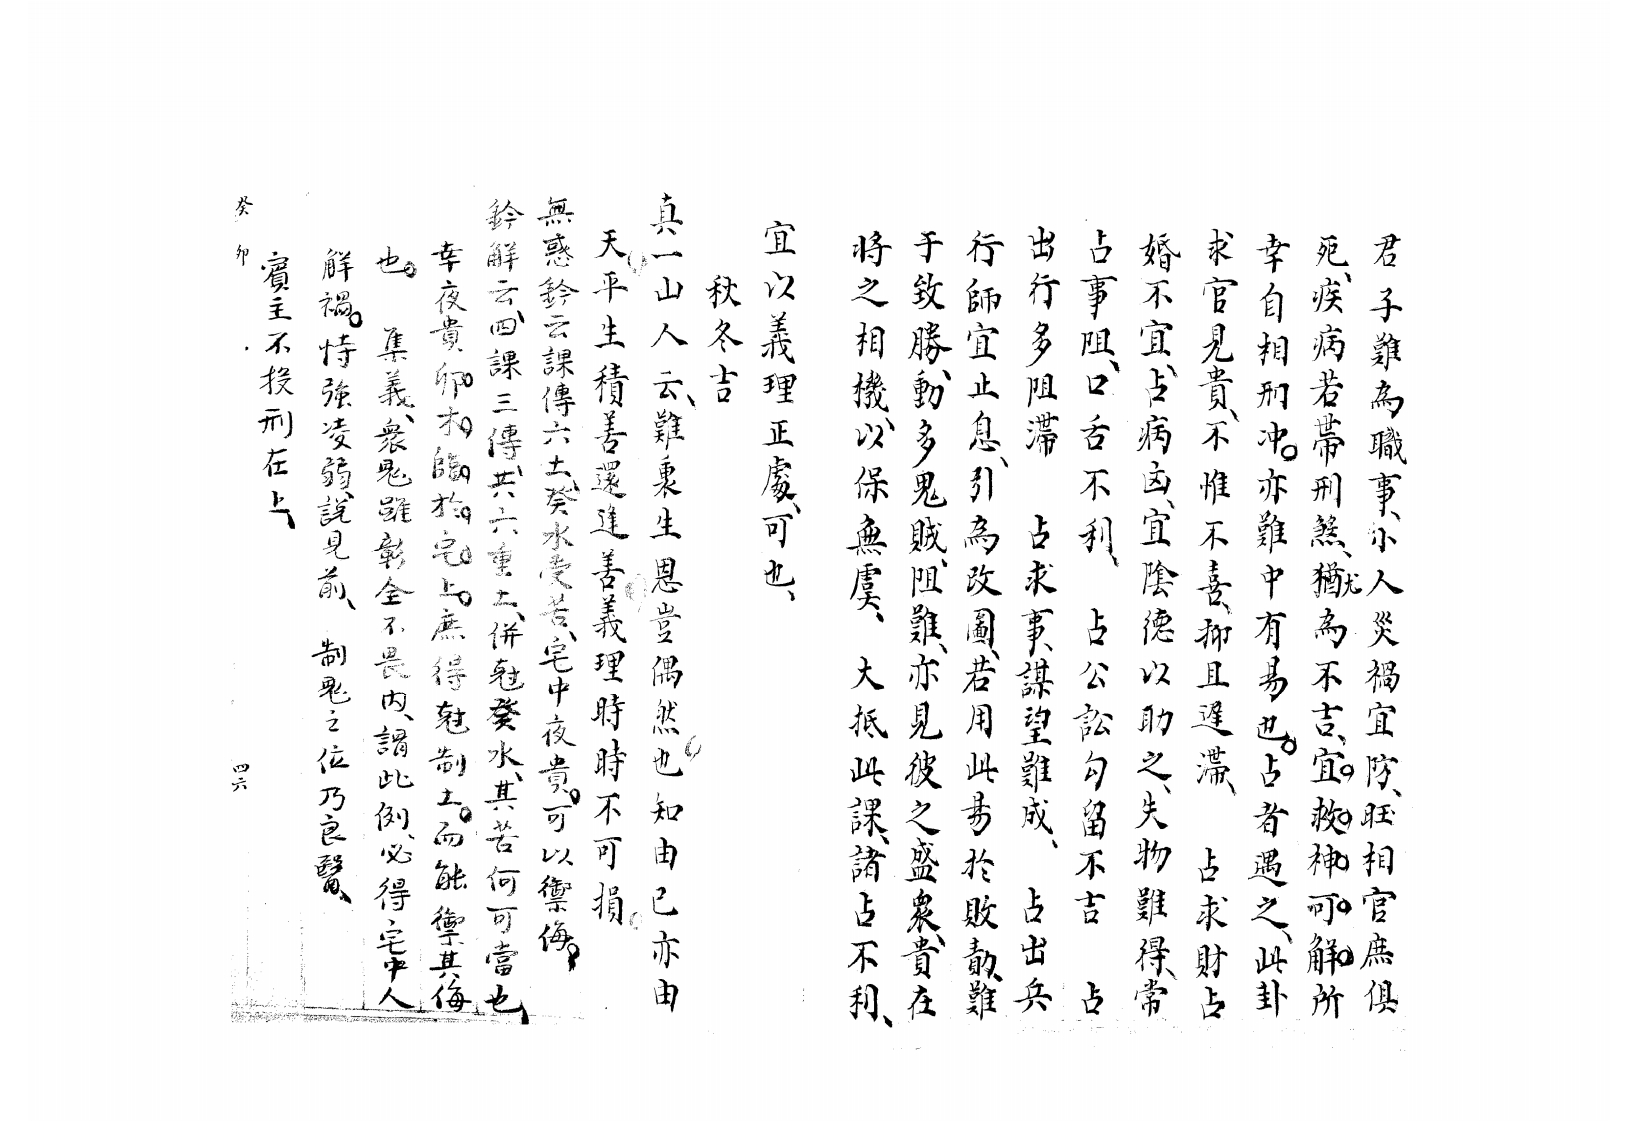 君子難為職事、小人災禍宜防、旺相官庶俱
死、疾病若帶刑煞、猶尤為不吉、宜救神可解所
幸自相刑冲。亦難中有易也。占者遇之、此卦
求官見貴、不惟不喜、抑且遲滯、　占求財占
婚不宜、占病凶、宜陰德以助之、失物難得、常
占事阻、口舌不利、　占公訟勾留不吉　占
出行多阻滯　占求事、謀望難成、　占出兵
行師宜止息、引為改圖、若用此易於敗勣、難
于致勝、動多鬼賊、阻難、亦見彼之盛衆、貴在
將之相機、以保無虞、　大抵此課、諸占不利、
宜以義理正處、可也、
秋冬吉
真一山人云、難裏生恩豈偶然也知由已亦由
天平生積善還進善義理時時不可損
無惑鈐云課傳六土、癸水受苦、宅中夜貴。可以禦侮。
鈐解云、四課三傳、共六重土、併尅癸水、其苦何可當也、
幸夜貴卯木臨於宅上。庶得尅制土。而能禦其侮
也。　集義、衆鬼雖彰全不畏內、謂此例、必得宅中人
解禍。恃強凌弱、說見前、　制鬼之位乃良醫、
賓主不投刑在上、
癸卯
四六